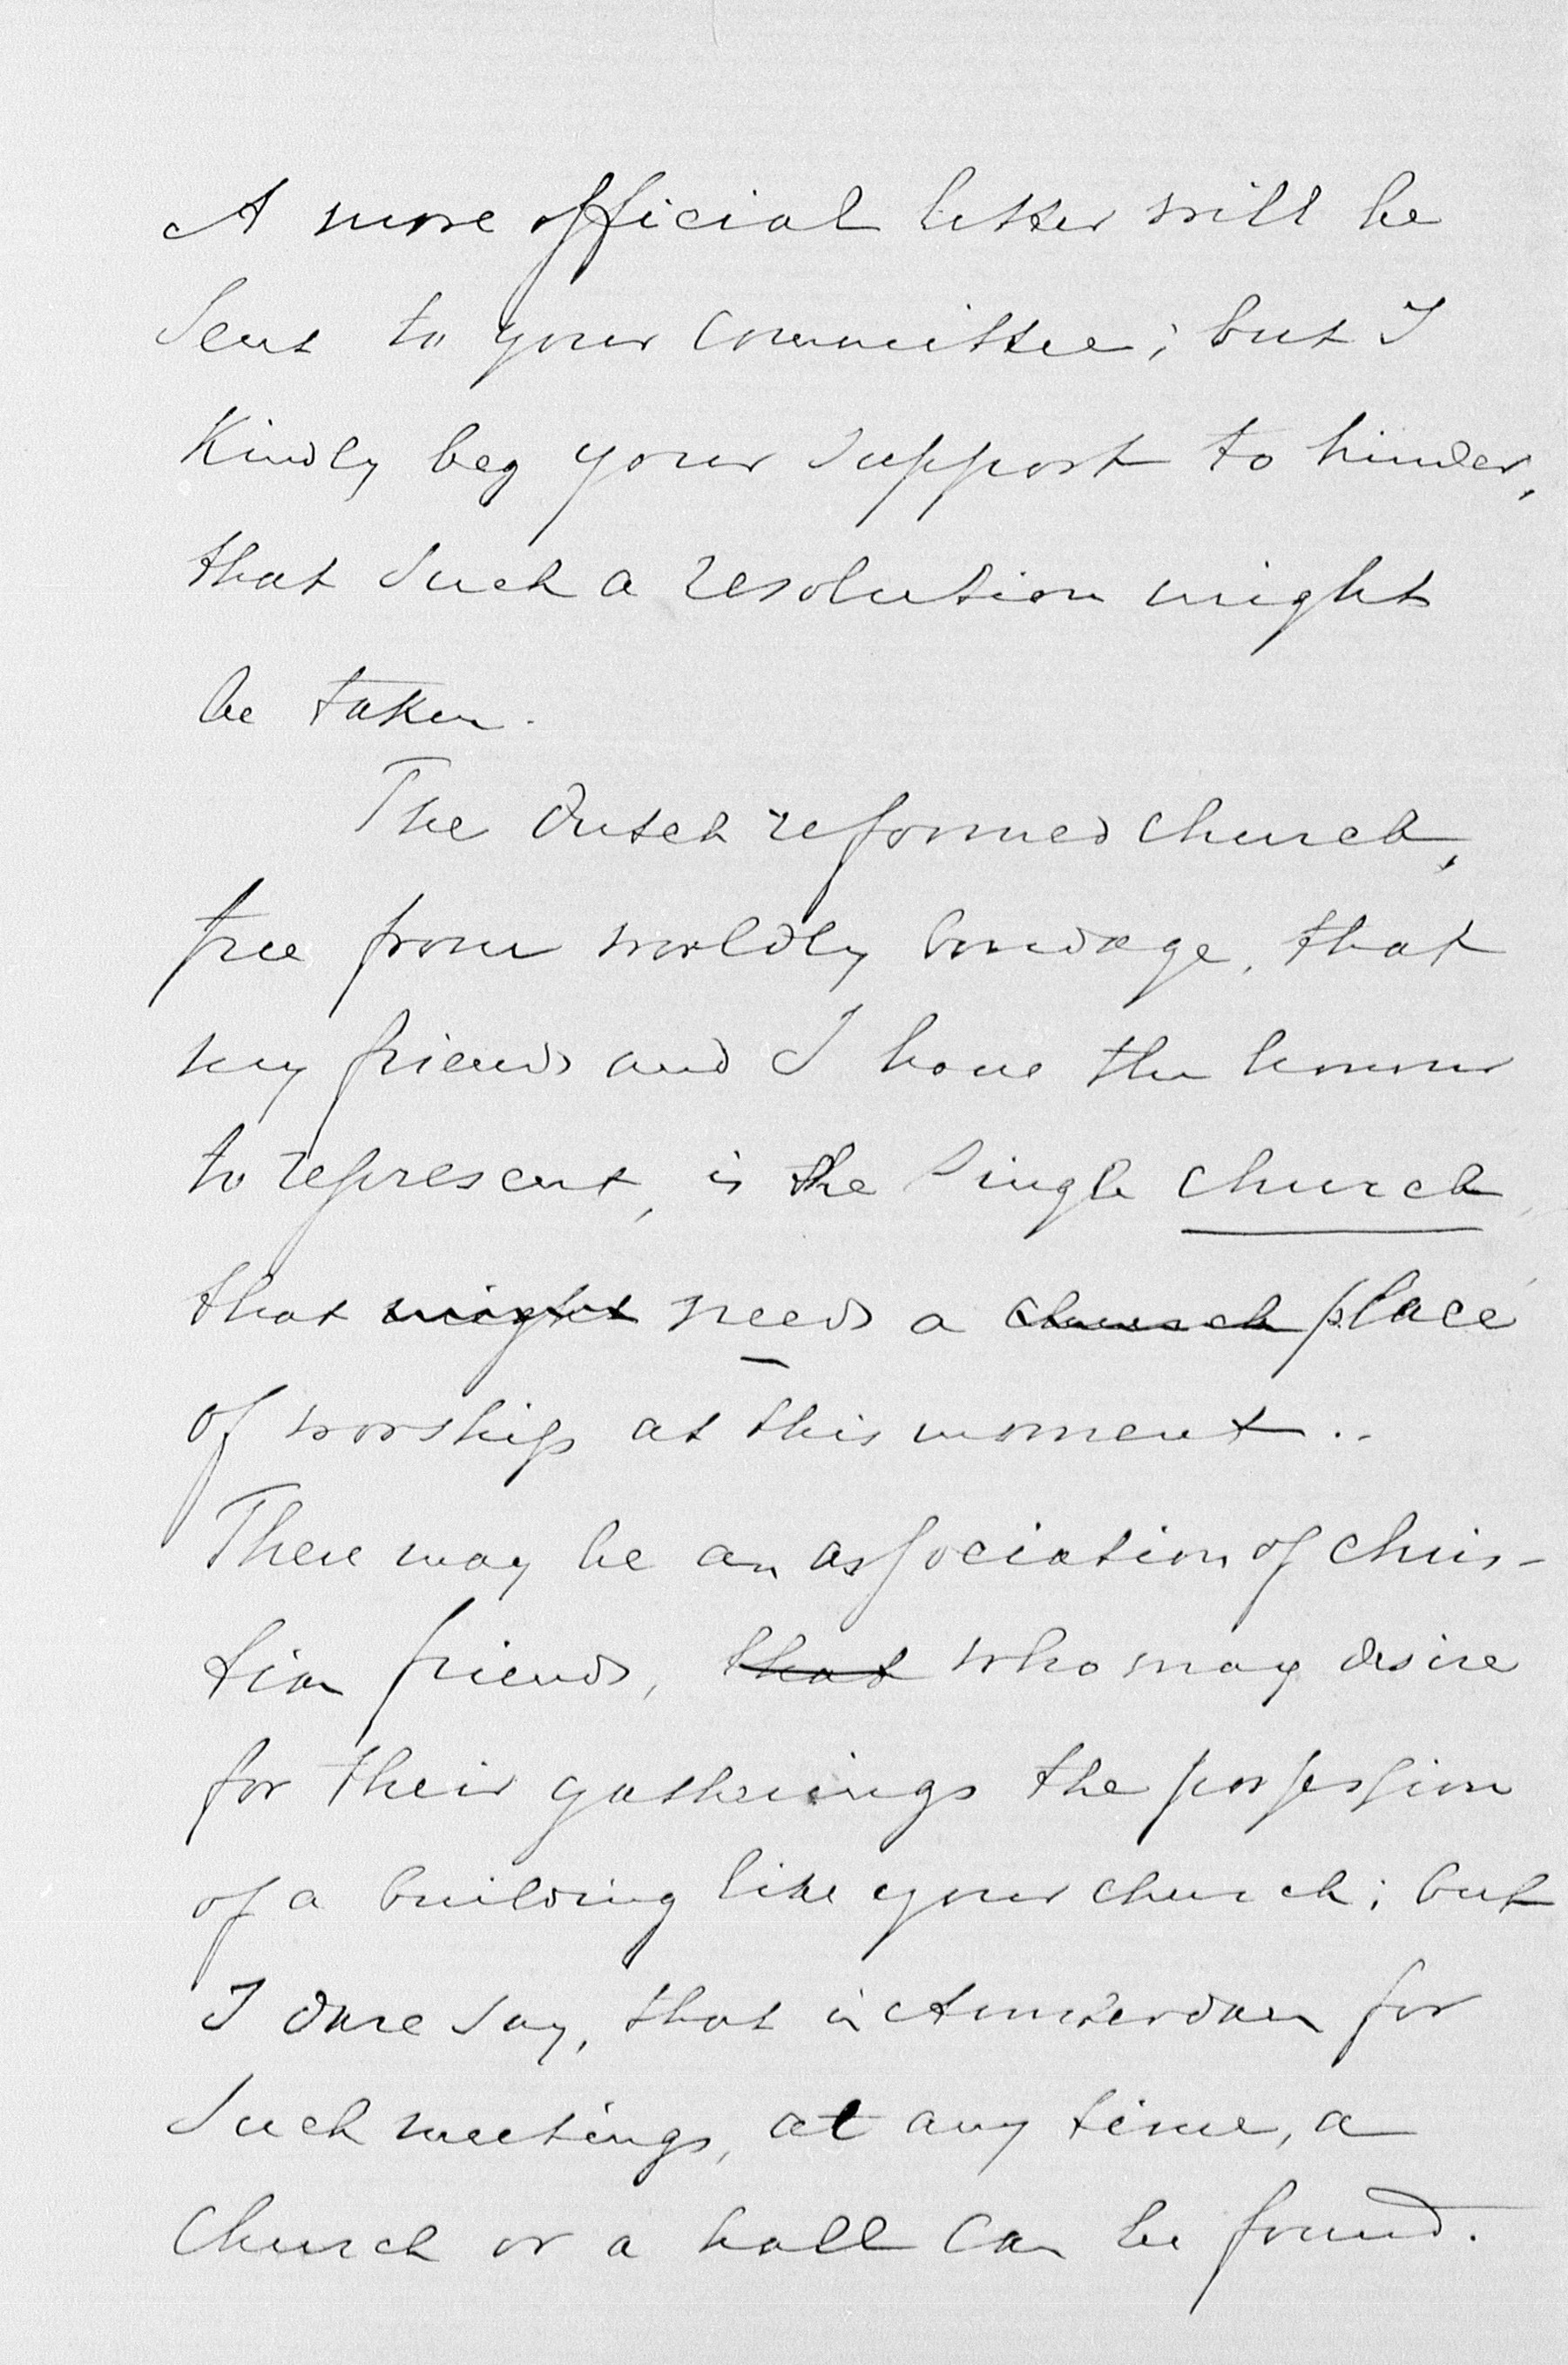 A more official letter will be
sent to your committee; but I
kindly beg your support to hinder,
that such a resolution might
be taken.
The Dutch reformed church,
free from worldly bondage, that
my friends and I have the honour
to represent, is the single church,
that might needs a church place
of worship at this moment..
There may be an association of chris-
tian friends, that who may desire
for their gatherings the possession
of a building like your church; but
I dare say, that in Amsterdam for
such meetings, at any time, a
church or a hall can be found.